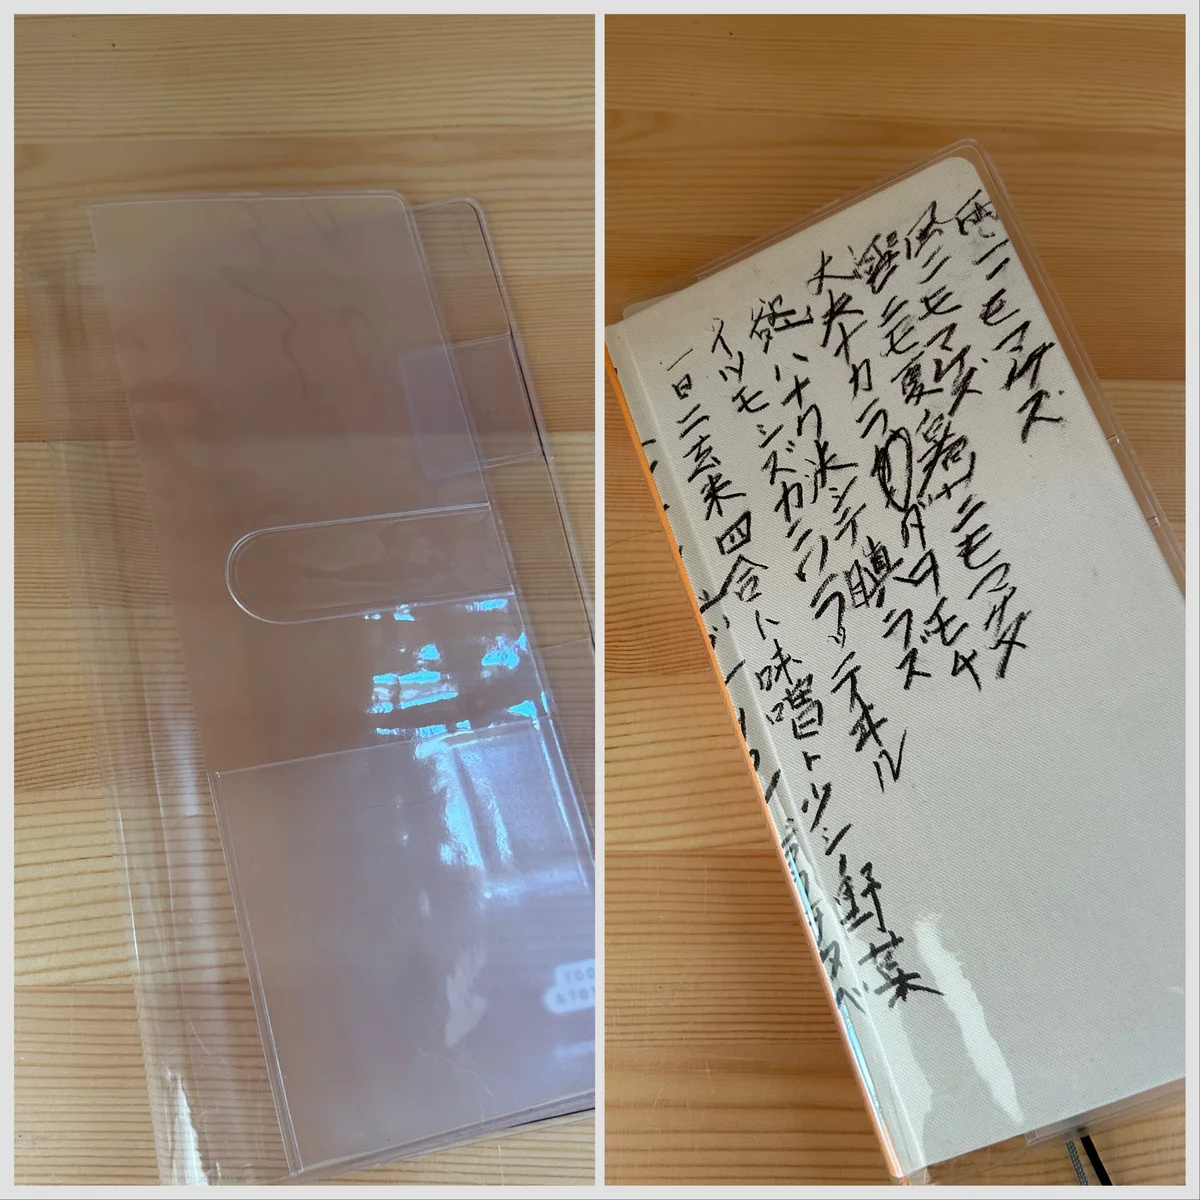 雨ニモマケズ
風ニモマケズ
雪ニモ夏ノ暑サニモマケヌ
丈夫ナカラダヲモチ
慾ハナク決シテ瞋ラズ
イツモシズカニワラッテヰル
一日ニ玄米四合ト味噌ト少シノ野菜
タベ